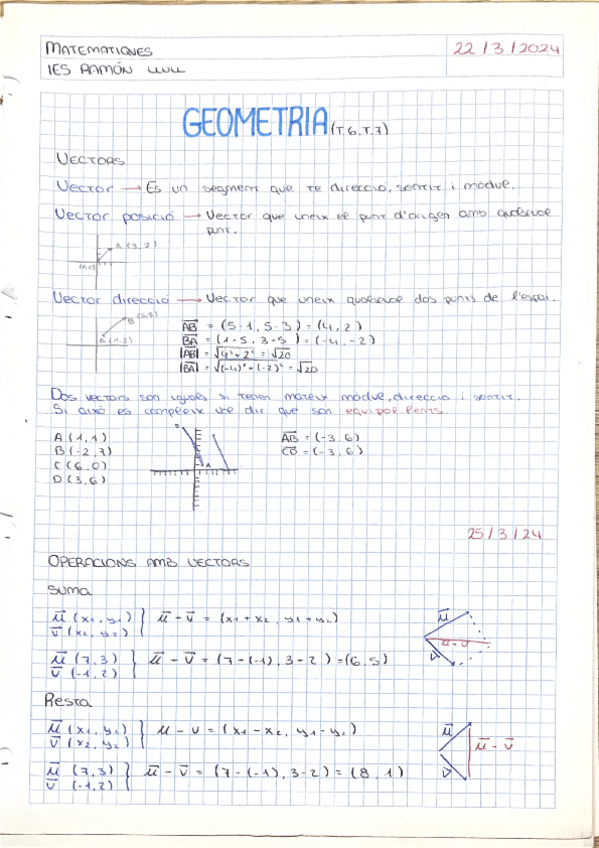 MATEMATIQUES
22/3/2024
IES RAMÓN LLULL
GEOMETRIA (T.6, T.7)
VECTORS
VECTOR → ES UN segment que te direcció, sentit i mòdul.
VECTOR POSICIÓ → Vector que uneix el punt d'origen amb qualsevol
punt.
A (3,2)
(0,0)
VECTOR DIRECCIÓ → Vector que uneix qualsevol dos punts de l'espai.
B (5,5)
A (1,3)
AB = (5-1, 5-3) = (4,2)
BA = (1-5, 3-5) = (-4,-2)
|AB| = √4²+2² = √20
|BA| = √(-4)²+(-2)² = √20
Dos vectors son iguals si tenen mateix mòdul, direcció i sentit.
Si això es compleix vol dir que son equipol·lents.
A (1,1)
B (-2,7)
C (6,0)
D (3,6)
B
A
AB = (-3,6)
CD = (-3,6)
25/3/24
OPERACIONS AMB VECTORS
SUMA
u (x₁, y₁)
v (x₂, y₂)
u - v = (x₁+x₂, y₁+y₂)
u (7,3)
v (-1,2)
u - v = (7-(-1), 3-2) = (6,5)
u
u-v
v
Resta
u (x₁, y₁)
v (x₂, y₂)
u - v = (x₁-x₂, y₁-y₂)
u (7,3)
v (-1,2)
u - v = (7-(-1), 3-2) = (8,1)
u
u - v
v